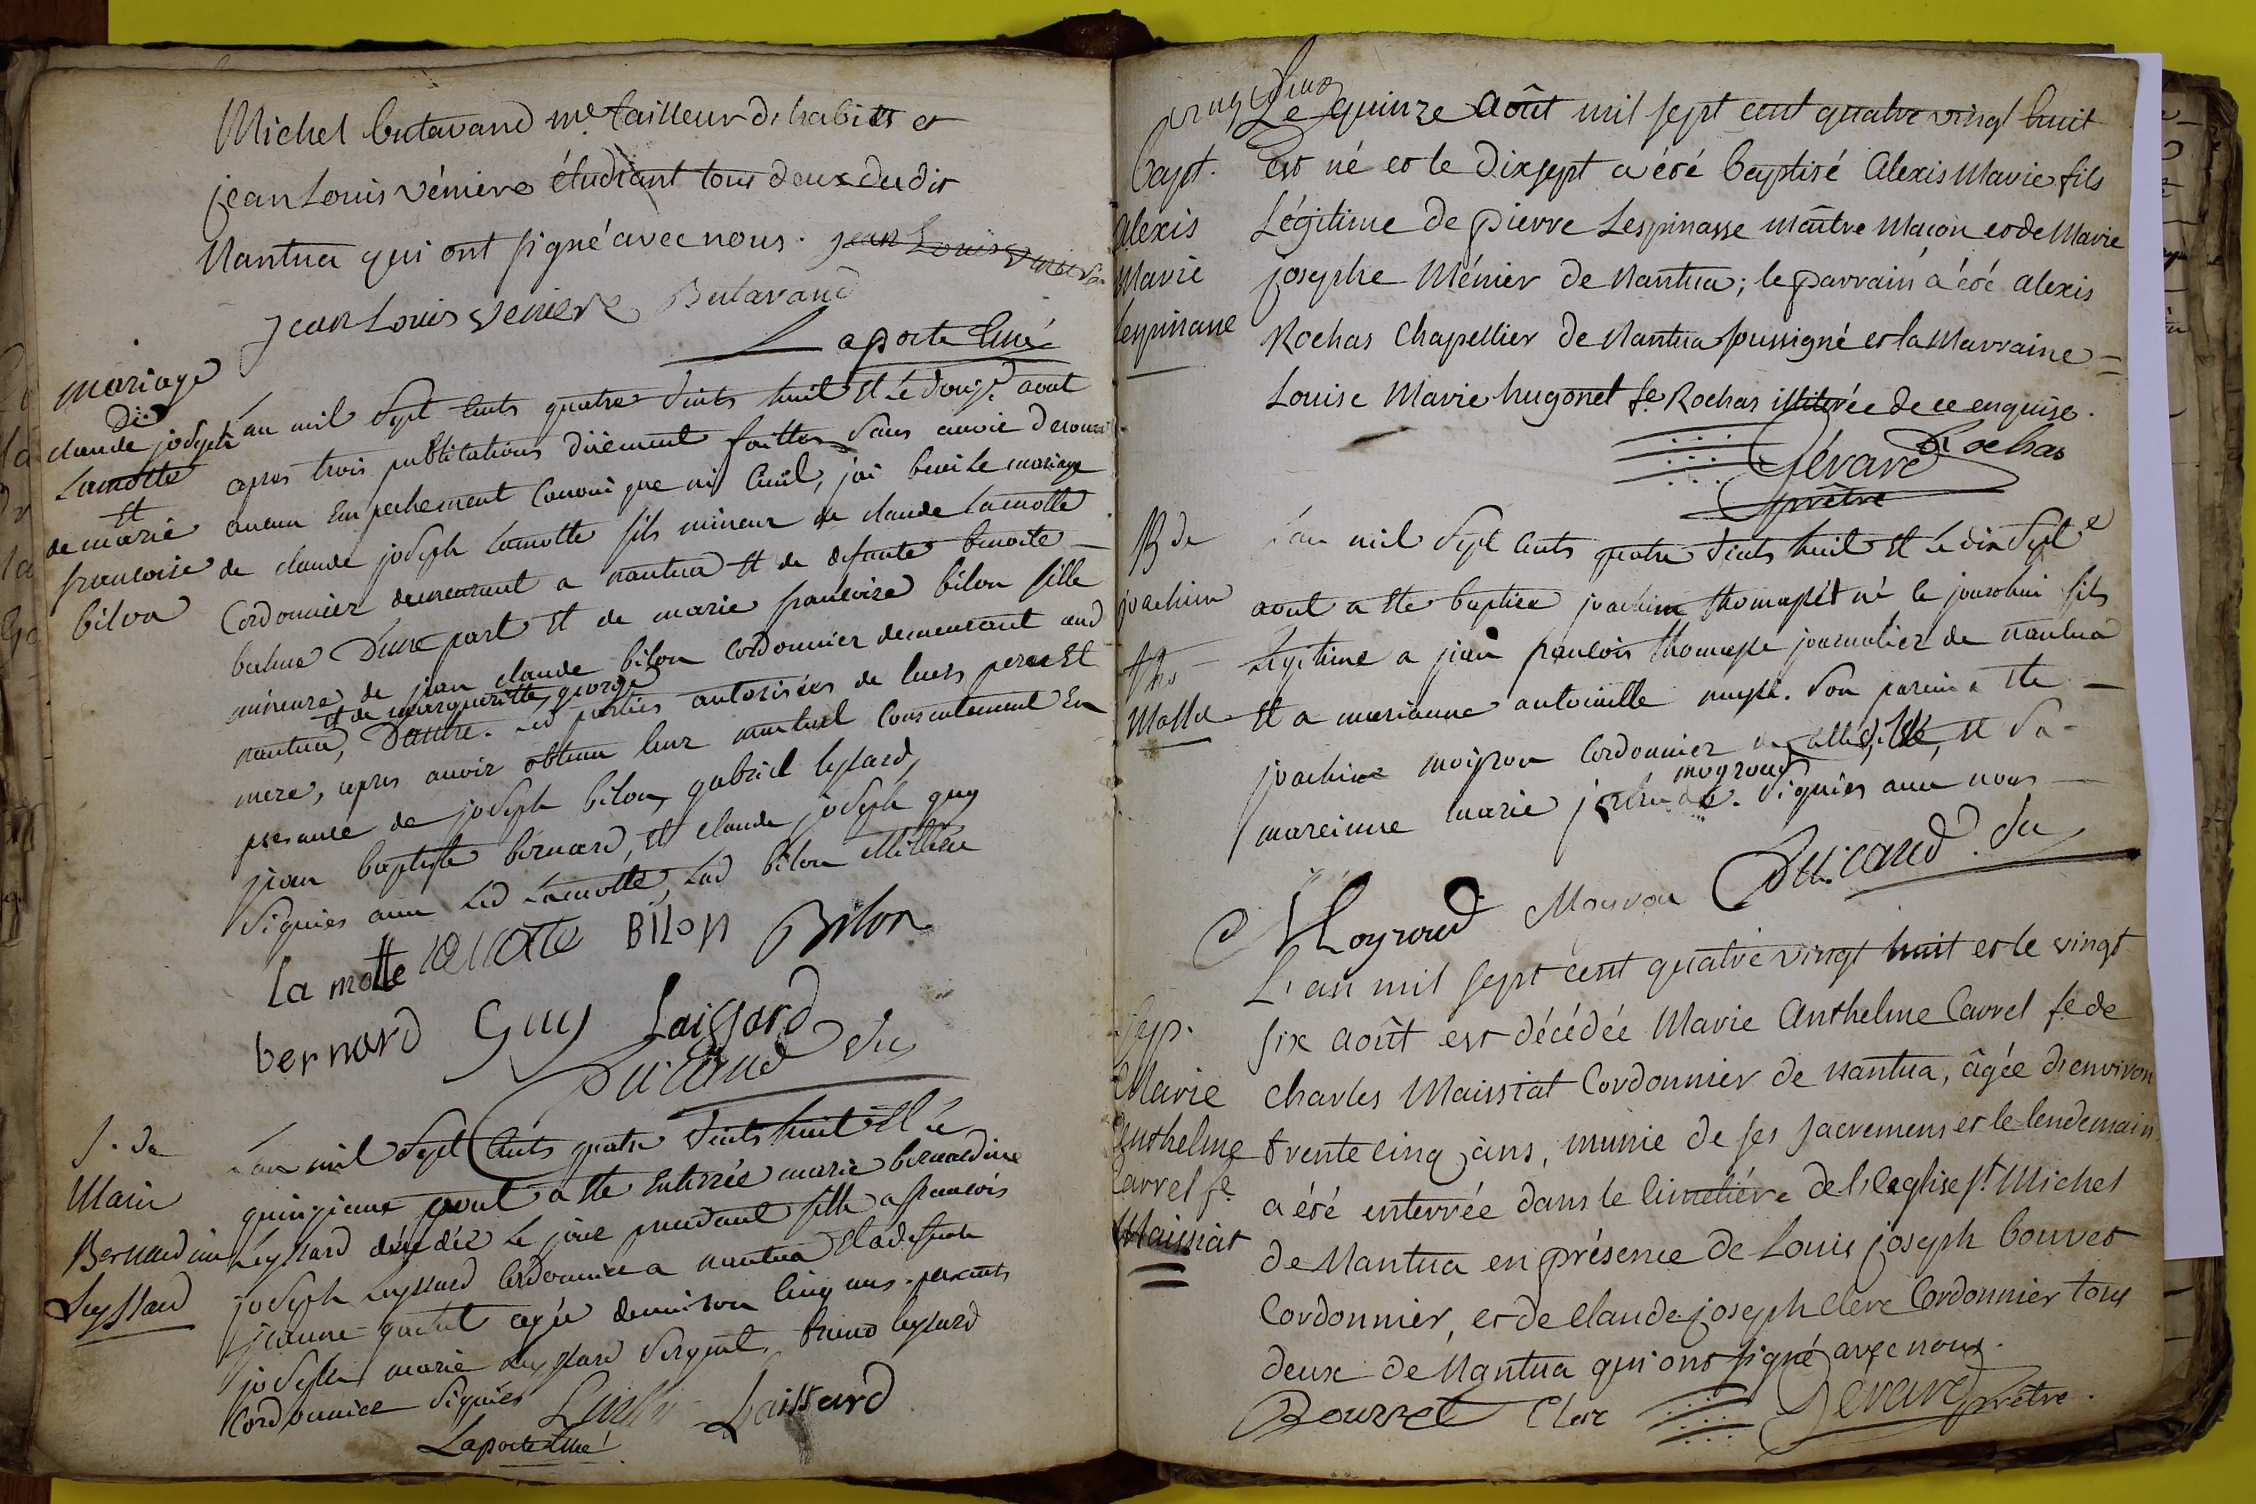 Michel butavand me tailleur d'habits et
jean Louis véniere étudiant tous deux du dit
Nantua qui ont signé avec nous. jean Louis
jean Louis veniere Butavand
Laporte curé
mariage
de
claude joseph
Lamotte
et
de marie
francoise
bilon
L'an mil sept cents quatre vints huit et le douze aout
apres trois publications düement faittes sans avoir decouvert
aucun empechement canonique ni civil, jai beni le mariage
de claude joseph Lamotte fils mineur de claude Lamotte
Cordonnier demeurant a nantua et de defunte benoite
D'une part et de marie francoise bilon fille
mineure de jean claude bilon cordonnier demeurant aud
et de margueritte george
nantua, D'autre. Les parties autorisées de leurs peres et
mere, apres avoir obtenu leur mutuel consentement En
presance de joseph bilon, gabriel leyssard,
jean baptiste bernard, et claude joseph guy
signies avec led Lamotte, lad bilon illiterée
la motte lamotte BiLon Bilon
bernard Guy Laissard
s. de
Marie
Bernardine
Leyssard
L'an mil sept cents quatre vints huit et le
quinzieme aout a ete enterrée marie bernardine
Leyssard décédée le jour precedant fille a francois
joseph Leyssard Cordonnier a nantua et a defunte
jeanne agée denviron cinq ans. presents
joseph marie Leyssard sergent, bruno leyssard
cordonnier signies
Laissard
Laporte curé
Bapt.
Alexis
Marie
Lespinasse
Le quinze Août mil sept cent quatre vingt huit
est né et le dixsept a été baptisé Alexis Marie fils
Légitime de pierre Lespinasse maître Maçon et de Marie
josephe Ménier de Nantua; le parrain a été alexis
Rochas Chapellier de Nantua soussigné et la Marraine
Louise Marie hugonet fe Rochas illiterée de ce enquise.
Rochas
Gévard
prêtre
B de
joachim
Tho
Masset
L'an mil sept cents quatre vints huit et le dix septe
aout a ete baptisé joachim thomasset né le jourdhui fils
Legitime a jean francois thomasset journalier de nantua
et a marianne antoinette Son parein a ete
joachim moiron Cordonnier et sa
moyroud
mareinne marie Signies avec nous
Moyroud Moiron
Sep.
Marie
Anthelme
Carrel fe
Maissiat
L'an mil sept cent quatre vingt huit et le vingt
six août est décédée Marie Anthelme Carrel fe de
Charles Maissiat Cordonnier de Nantua, âgée d'environ
trente cinq ans, munie de ses sacremens et le lendemain
a été enterrée dans le Cimetière de l'eglise St Michel
de Nantua en présence de Louis joseph bouvet
Cordonnier, et de claude joseph clerc Cordonnier tous
deux de Nantua qui ont signé avec nous.
Bouvret Clerc Gévard prêtre.